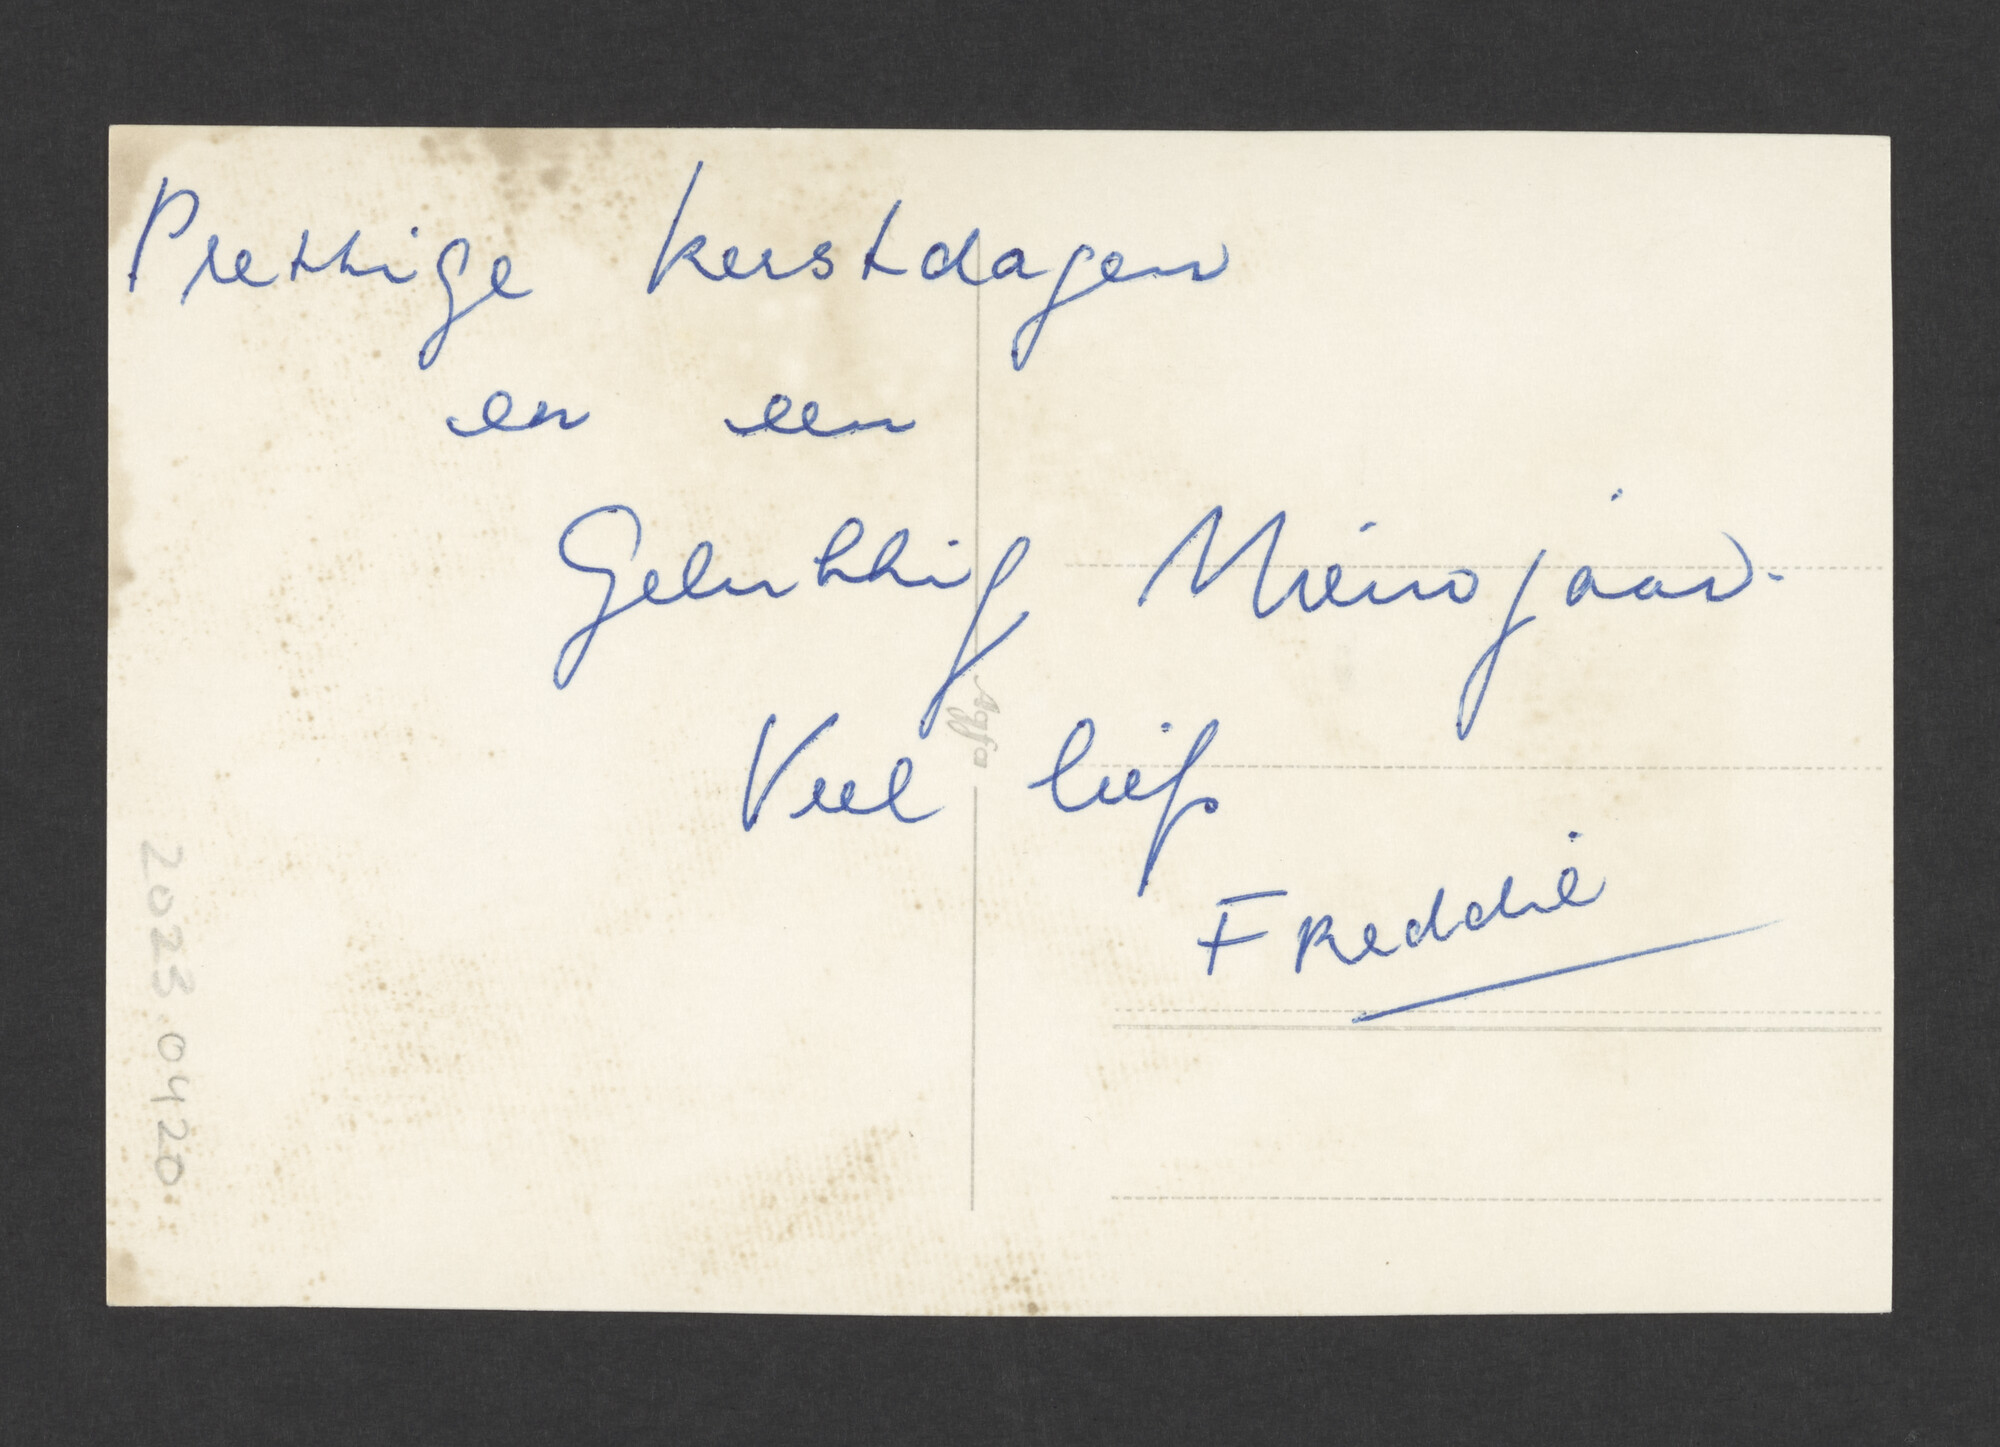 Prettige kerstdagen
en een
Gelukkig Nieuwjaar.
Veel liefs
Freddie
Agfa
2023.0420